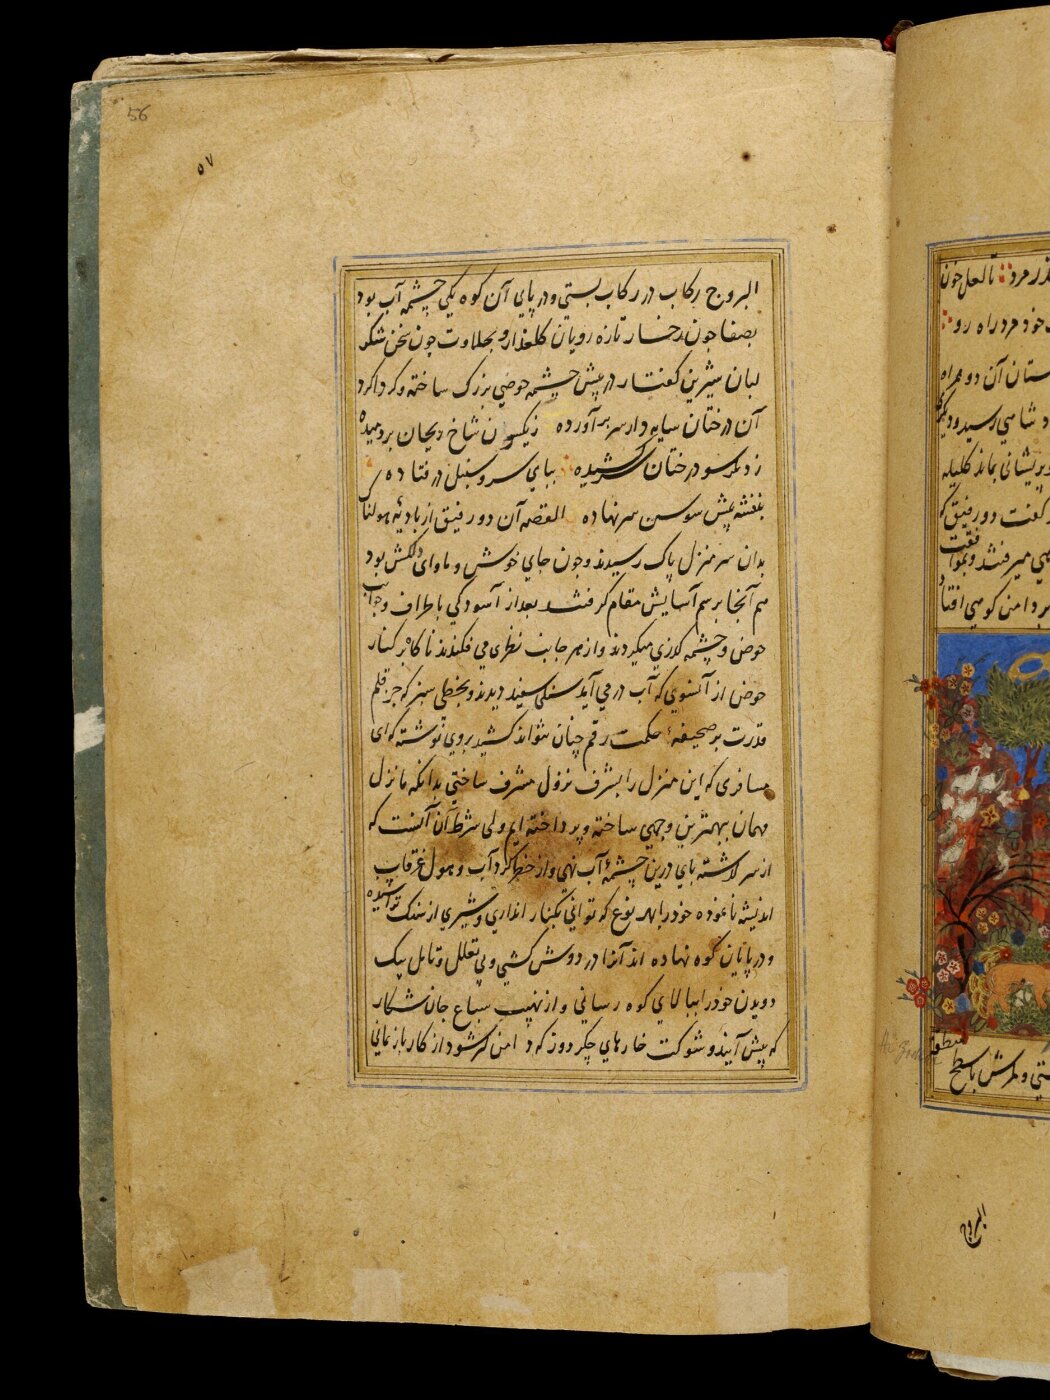 56
۵۷
البروج رکاب در رکاب بستی و در پای آن کوه یکی چشمه آب بود
بصفا چون رخسار تازه رویان گلعذار و بحلاوت چون سخن شکر
لبان شیرین گفتار در پیش چشمه حوضی بزرگ ساخته و گرداگرد
آن درختان سایه دار سر برآورده ز یکسو ن شاخ ریحان بر دمیده
ز دیگر سو درختان سر کشیده بپای سرو سنبل در فتاده
بنفشه پیش سوسن سر نهاده القصه آن دو رفیق از بادیهٔ هولناک
بدان سر منزل پاک رسیدند و چون جای خوش و ماوای دلکش بود
هم آنجا برسم آسایش مقام گرفتند بعد از آسودگی باطراف وجوانب
حوض و چشمه گذری میکردند و از هر جانب نظری می فکندند ناگاه بر کنار
حوض از آنسوی که آب در می آید سنکی سفید دیدند و بخطی سبز که جز قلم
قدرت بر صحیفهٔ حکمت رقم چنان نتواند کشید بروی نوشته که ای
مسافری که این منزل را بشرف نزول مشرف ساختی بدانکه ما نزل
مهمان ببهترین وجهی ساخته و پرداخته ایم ولی شرط آن آنست که
از سر گذشته پای درین چشمهٔ آب نهی و از خطر گرداب و هول غرقاب
اندیشه نانموده خود را بهر نوع که توانی بکنار انداری و شیری از سنک تراشیده
و در پایان کوه نهاده اند آنرا در دوش کشی و بی تعلل و تامل بیک
دویدن خود را ببالای کوه رسانی و از نهیب سباع جان شکار
که پیش آیند و شوکت خارهای جگر دوز که دامن گیر شود از کار باز نمانی
تا لعل خون
خود مرد راه رو
ستان آن دو همراه
پریشانی بماند کلیله
گفت دو رفیق که
می رفتند و بموافقت
بر دامن کوهی افتاد
البروج